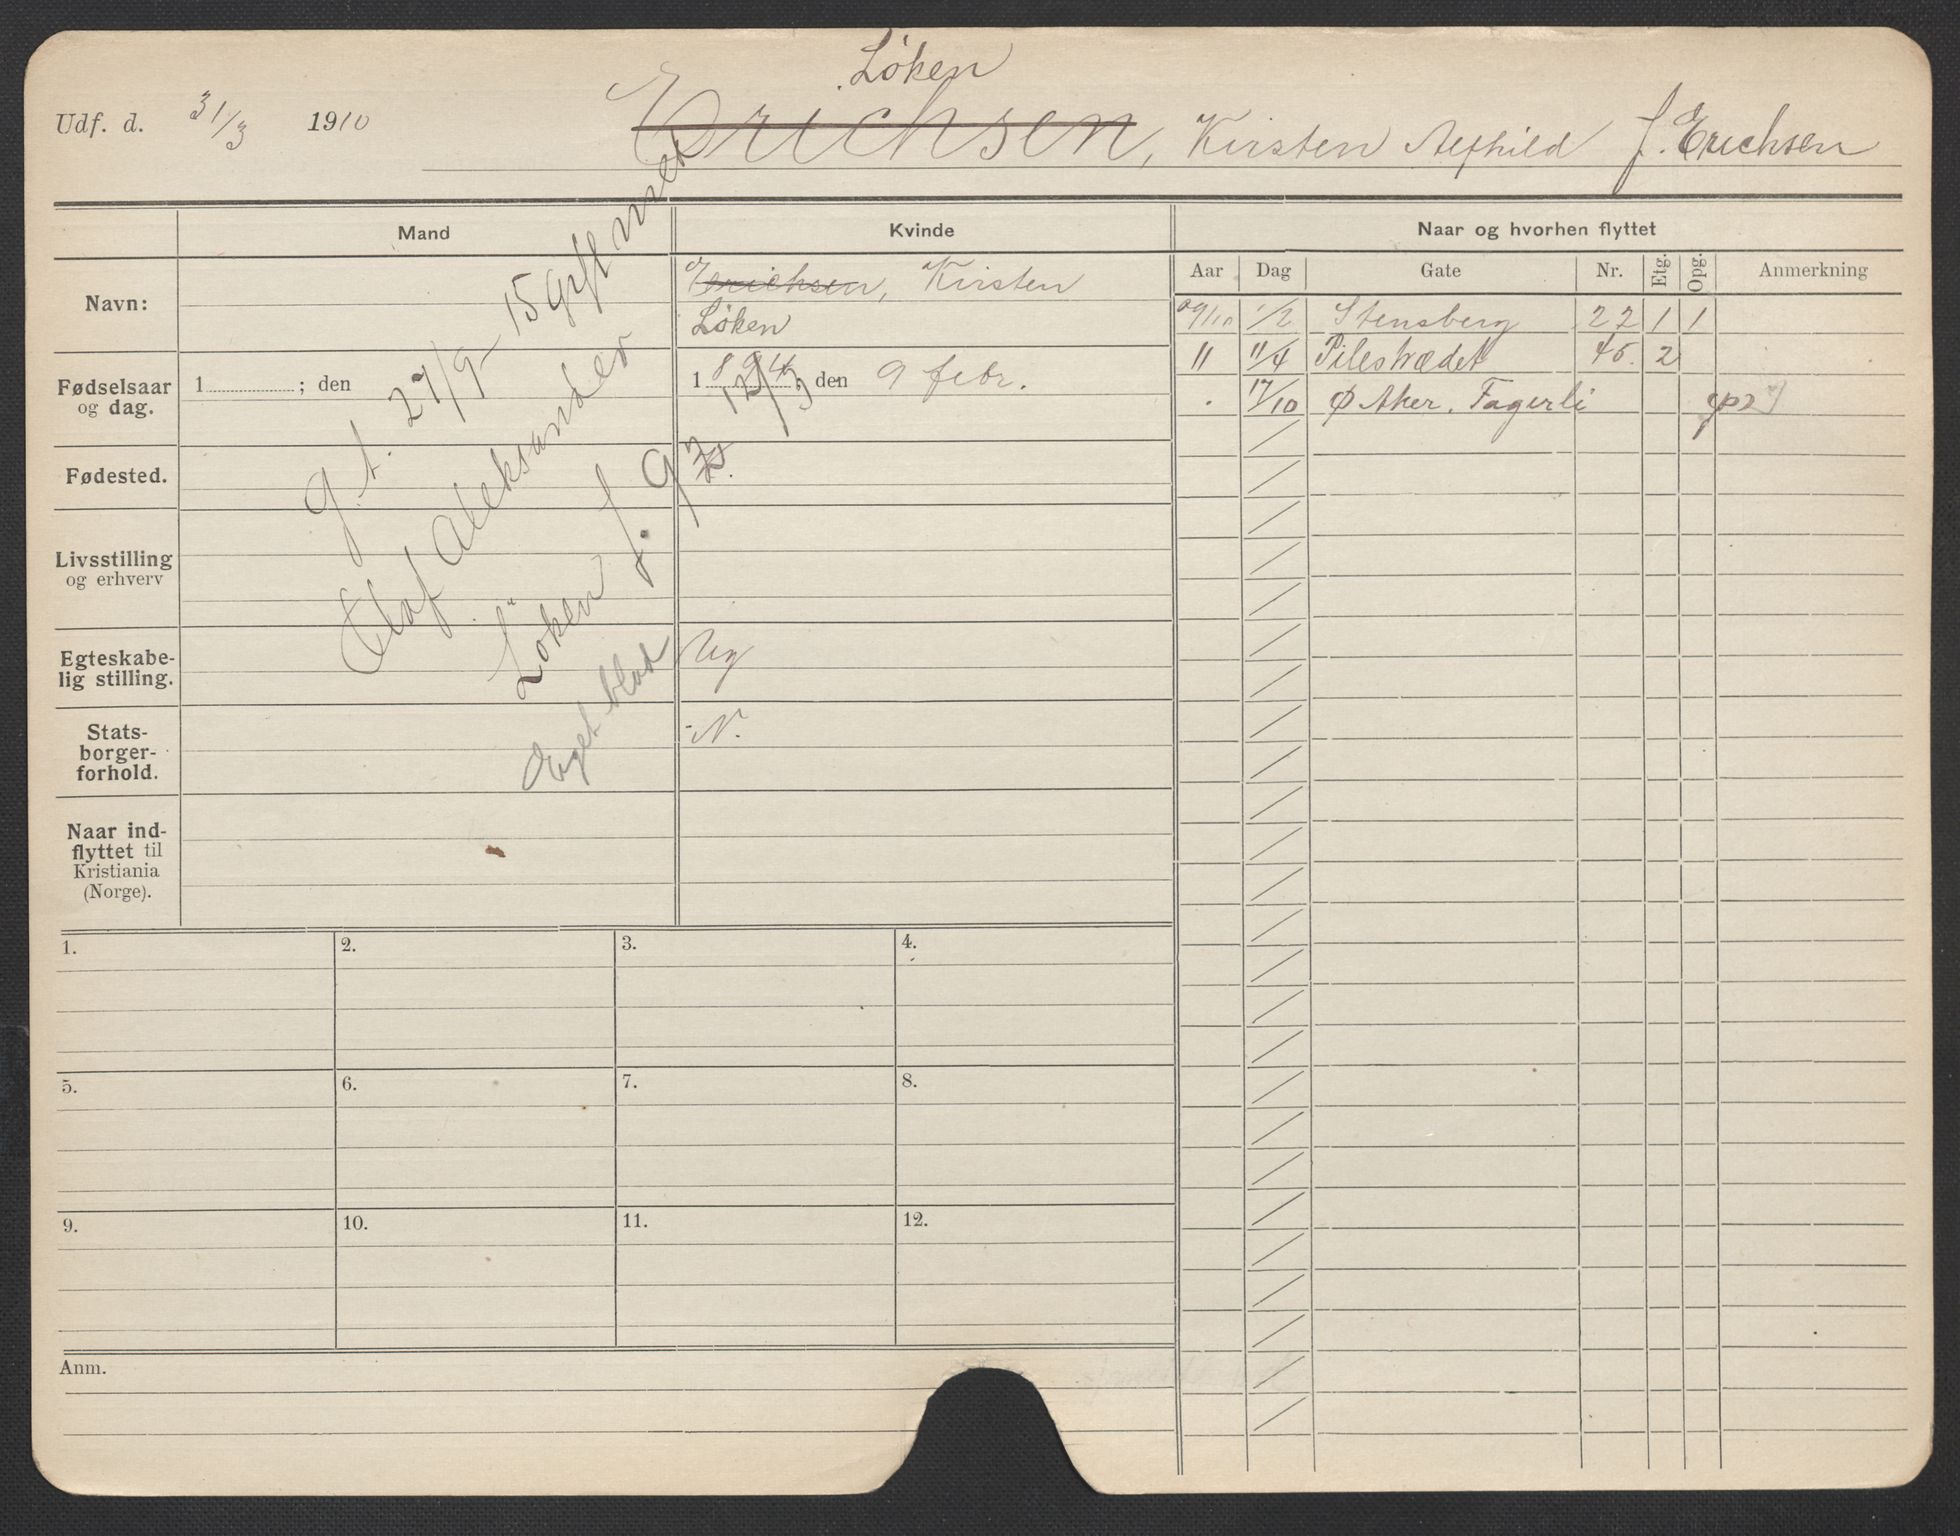 Løken
Udf. d. 31/3 1910 Erichsen, Kirsten Alfhild f. Erichsen
Mand Kvinde Naar og hvorhen flyttet
Aar Dag Gate Nr. Etg. Opg. Anmerkning
Navn: Erichsen, Kirsten
Løken
09/10 1/2 Stensberg 22 1 1
11 11/4 Pilestrædet 45. 2
. 17/10 Ø Aker. Fagerli
Fødselsaar og dag. 1 ; den 1894; den 9 febr.
g. t. 27/9-15 gift med
Olaf Aleksander
Løken f. 12/3 9
eget blad
Fødested.
Livsstilling
og erhverv
Egteskabe-
lig stilling. Ug
Stats-
borger-
forhold. N.
Naar ind-
flyttet til
Kristiania
(Norge).
1. 2. 3. 4.
5. 6. 7. 8.
9. 10. 11. 12.
Anm.